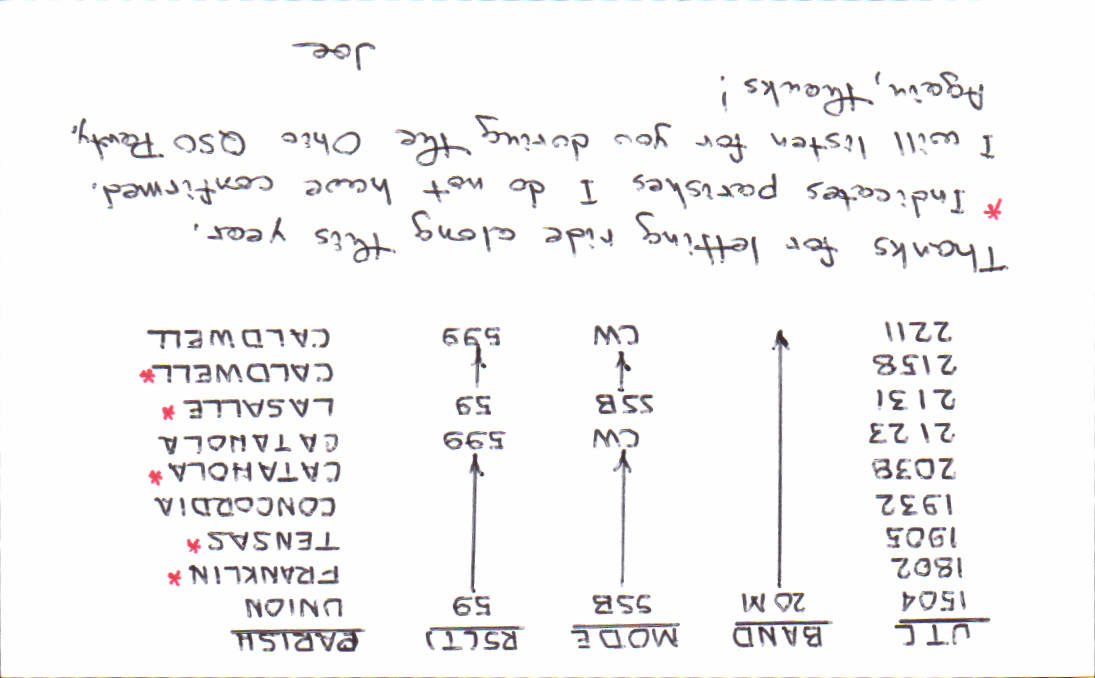 UTC BAND MODE RS(T) PARISH
1504 20M SSB 59 UNION
1802 FRANKLIN *
1905 TENSAS *
1932 CONCORDIA
2038 CATAHOLA *
2123 CW 599 CATAHOLA
2131 SSB 59 LASALLE *
2158 CALDWELL *
2211 CW 599 CALDWELL
Thanks for letting ride along this year.
* Indicates parishes I do not have confirmed.
I will listen for you during the Ohio QSO Party.
Again, thanks!
Joe